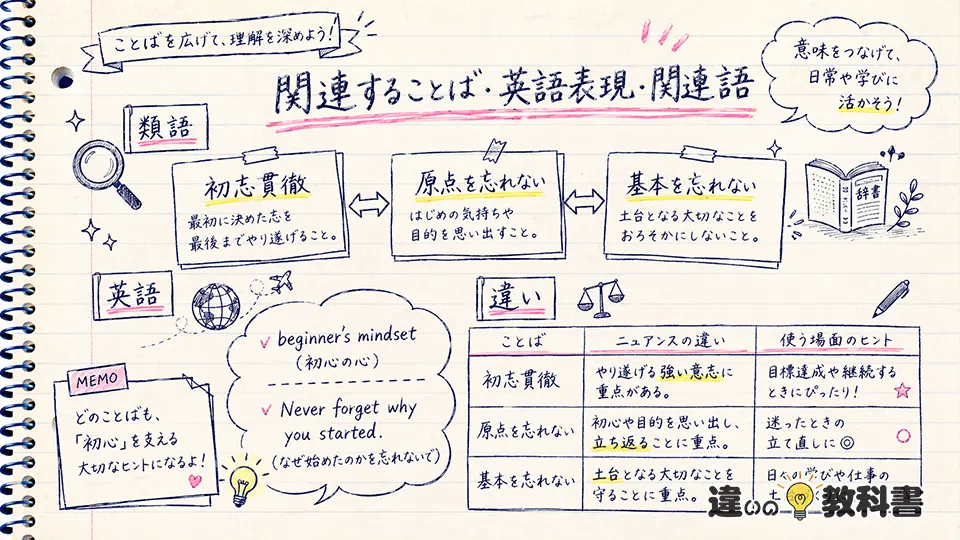 ことばを広げて、理解を深めよう!
関連することば・英語表現・関連語
意味をつなげて、
日常や学びに
活かそう!
類語
初志貫徹
最初に決めた志を
最後までやり遂げること。
原点を忘れない
はじめの気持ちや
目的を思い出すこと。
基本を忘れない
土台となる大切なことを
おろそかにしないこと。
辞書
英語
beginner's mindset
(初心の心)
Never forget why
you started.
(なぜ始めたのかを忘れないで)
MEMO
どのことばも、
「初心」を支える
大切なヒントになるよ!
違い
ことば ニュアンスの違い 使う場面のヒント
初志貫徹 やり遂げる強い意志に 目標達成や継続する
重点がある。 ときにぴったり!
原点を忘れない 初心や目的を思い出し、 迷ったときの
立ち返ることに重点。 立て直しに◎
基本を忘れない 土台となる大切なことを 日々の学びや仕事の
守ることに重点。 土
違いの教科書